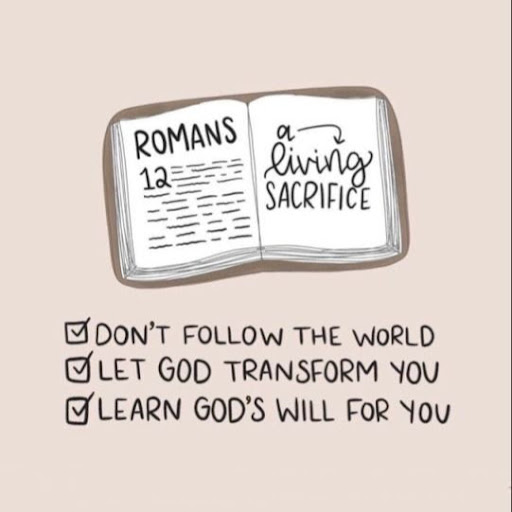 ROMANS
12
a
living
SACRIFICE
DON'T FOLLOW THE WORLD
LET GOD TRANSFORM YOU
LEARN GOD'S WILL FOR YOU